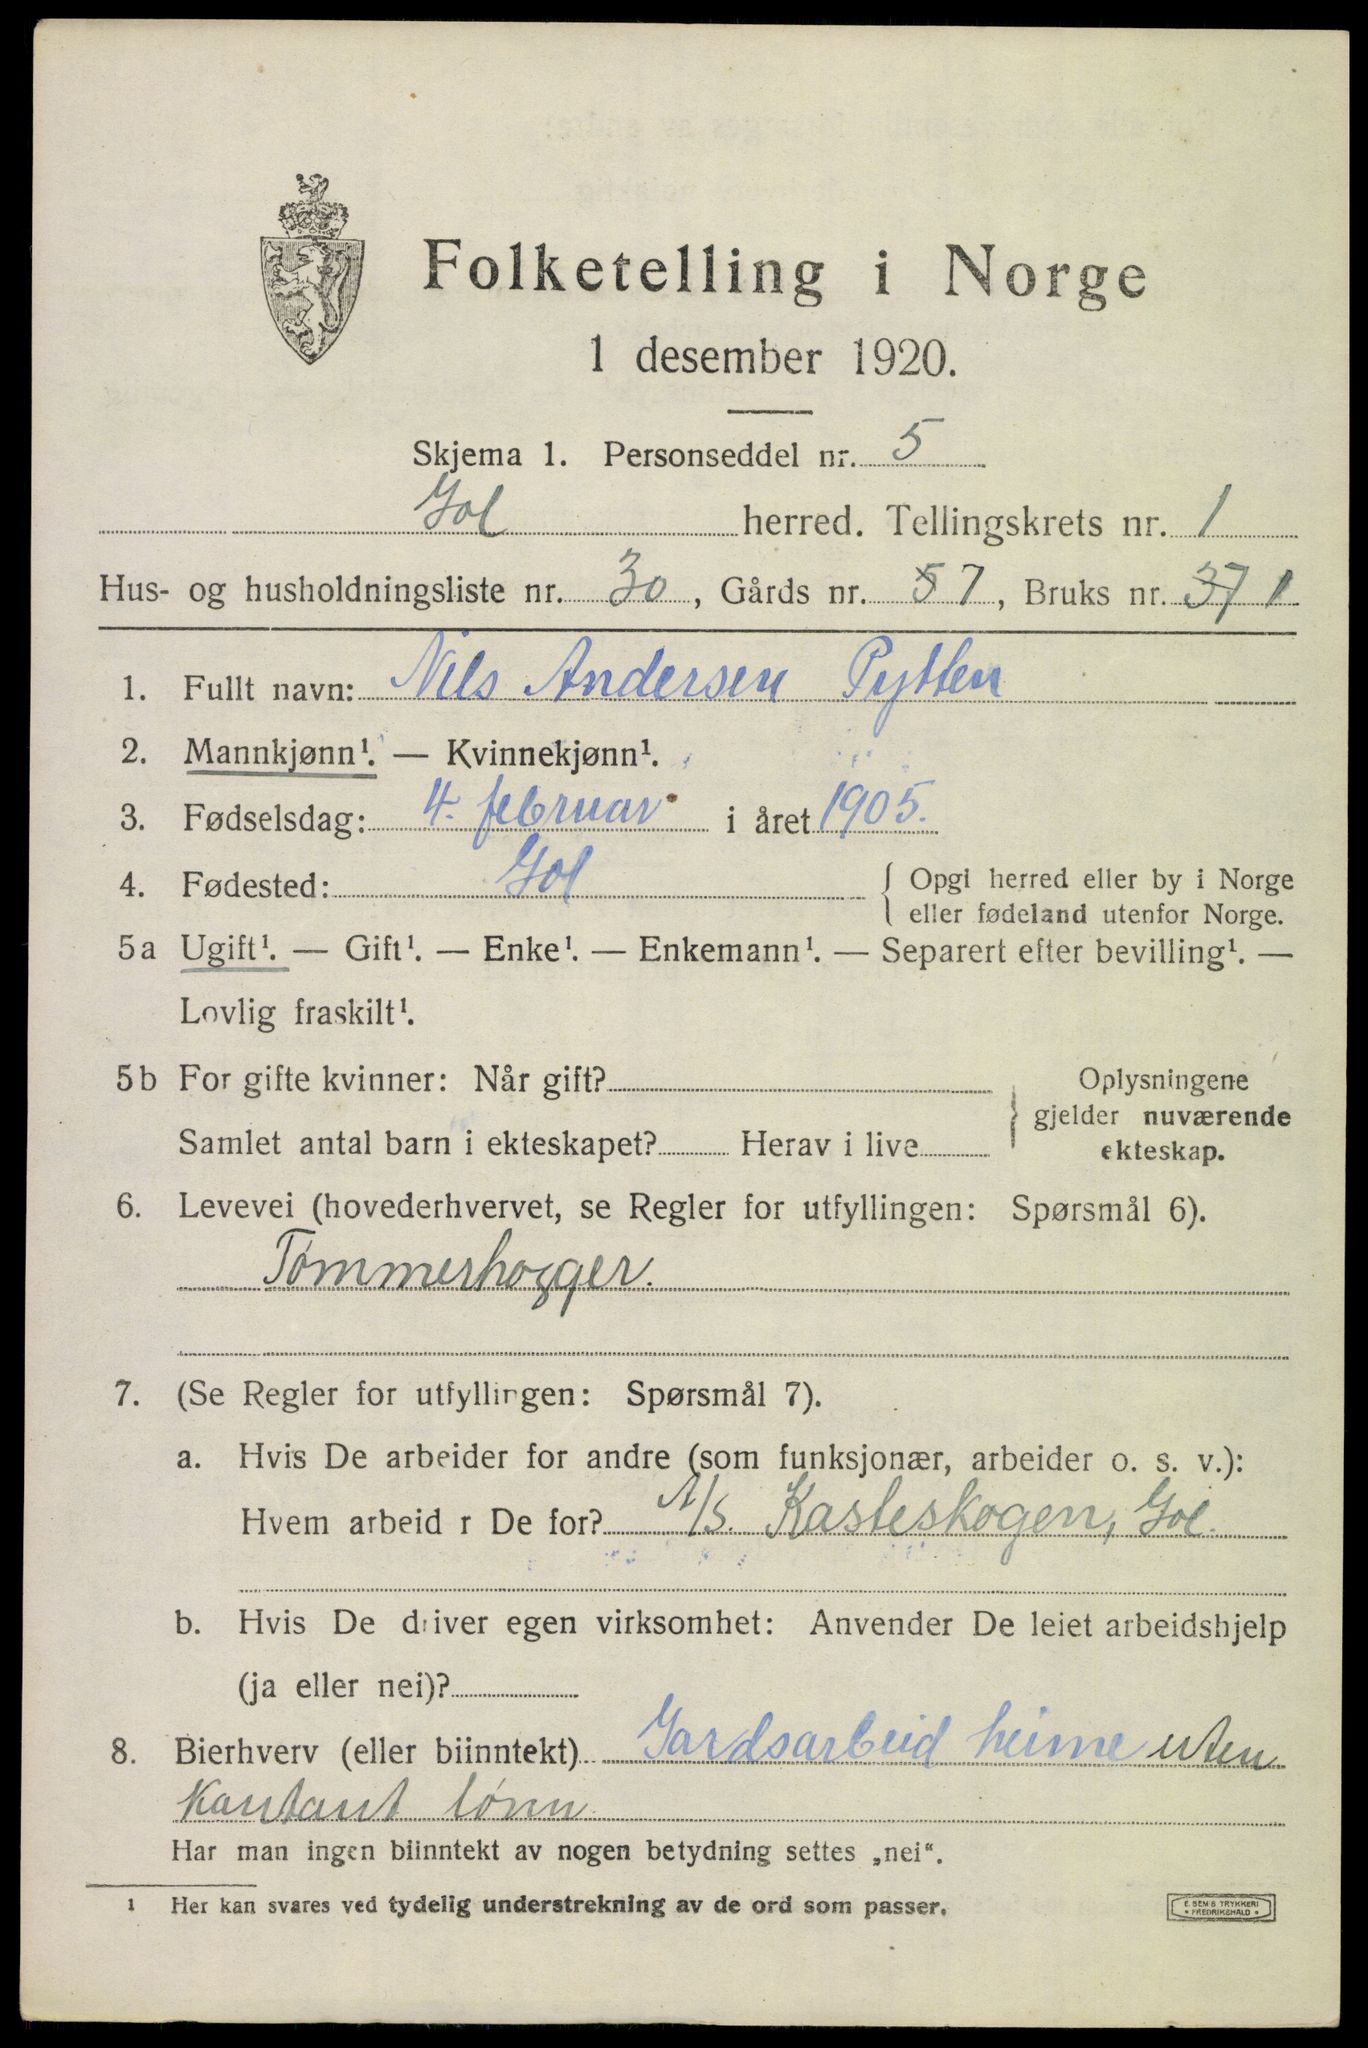 Folketelling i Norge
1 desember 1920.
Skjema 1. Personseddel nr. 5
Gol herred. Tellingskrets nr. 1
Hus- og husholdningsliste nr. 30, Gårds nr. 57, Bruks nr. 37 1
1. Fullt navn: Nils Andersen Pytten
2. Mannkjønn¹. — Kvinnekjønn¹.
3. Fødselsdag: 4. februar i året 1905.
4. Fødested: Gol { Opgi herred eller by i Norge
eller fødeland utenfor Norge.
5a Ugift¹. — Gift¹. — Enke¹. — Enkemann¹. — Separert efter bevilling¹. —
Lovlig fraskilt¹.
5b For gifte kvinner: Når gift? } Oplysningene
gjelder nuværende
Samlet antal barn i ekteskapet? Herav i live
ekteskap.
6. Levevei (hovederhvervet, se Regler for utfyllingen: Spørsmål 6).
Tømmerhogger.
7. (Se Regler for utfyllingen: Spørsmål 7).
a. Hvis De arbeider for andre (som funksjonær, arbeider o. s. v.):
Hvem arbeid r De for? A/S. Kasteskogen, Gol.
b. Hvis De driver egen virksomhet: Anvender De leiet arbeidshjelp
(ja eller nei)?
8. Bierhverv (eller biinntekt) Gardsarbeid heime uten
kontant lønn
Har man ingen biinntekt av nogen betydning settes „nei“.
1 Her kan svares ved tydelig understrekning av de ord som passer.
E. SEM'S TRYKKERI
• FREDRIKSHALD •